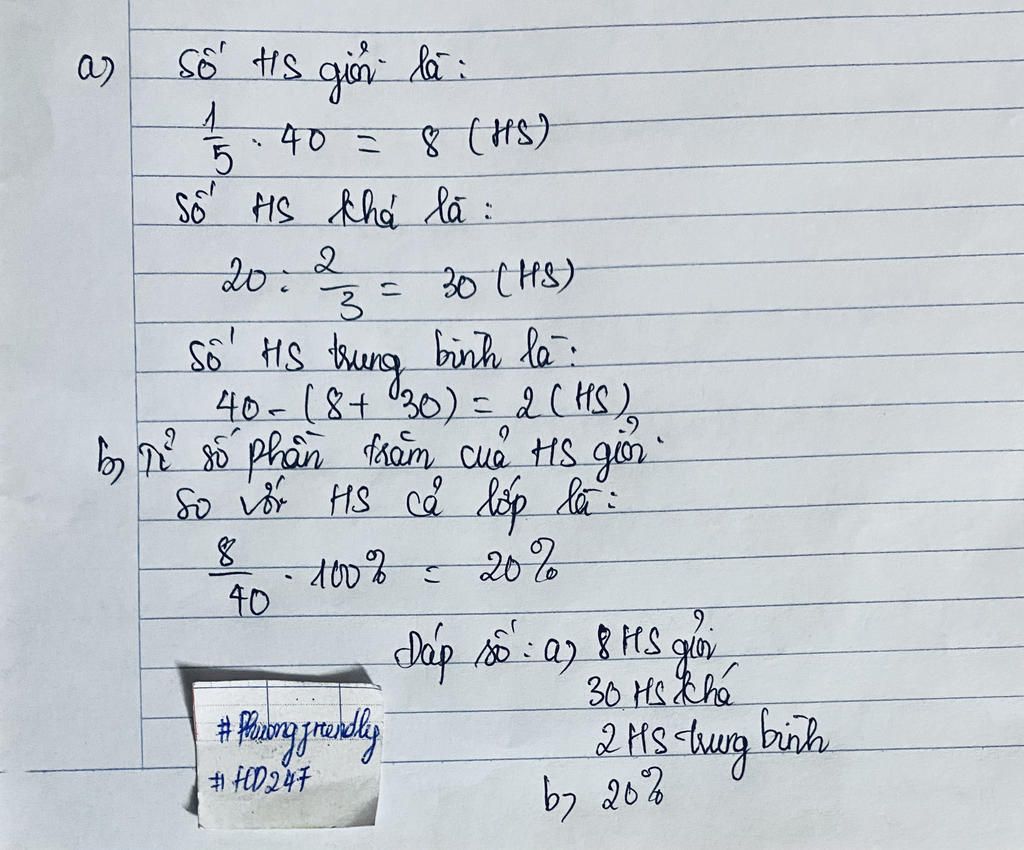 a) Số HS giỏi là:
1/5 . 40 = 8 (HS)
Số HS khá là:
20 : 2/3 = 30 (HS)
Số HS trung bình là:
40 - (8 + 30) = 2 (HS)
b) Tỉ số phần trăm của HS giỏi
so với HS cả lớp là:
8/40 . 100% = 20%
Đáp số: a) 8 HS giỏi
30 HS khá
2 HS trung bình
b) 20%
#Phuongfriendly
#HD247